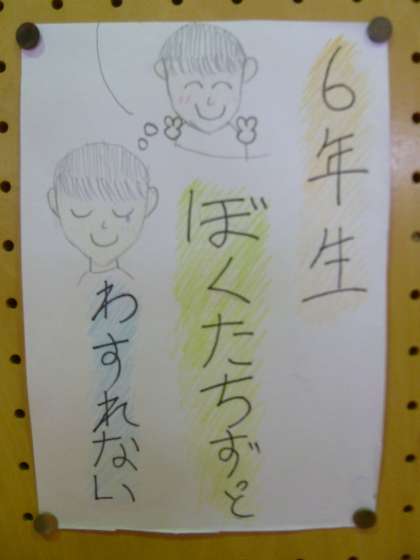 6年生
ぼくたちずっと
わすれない